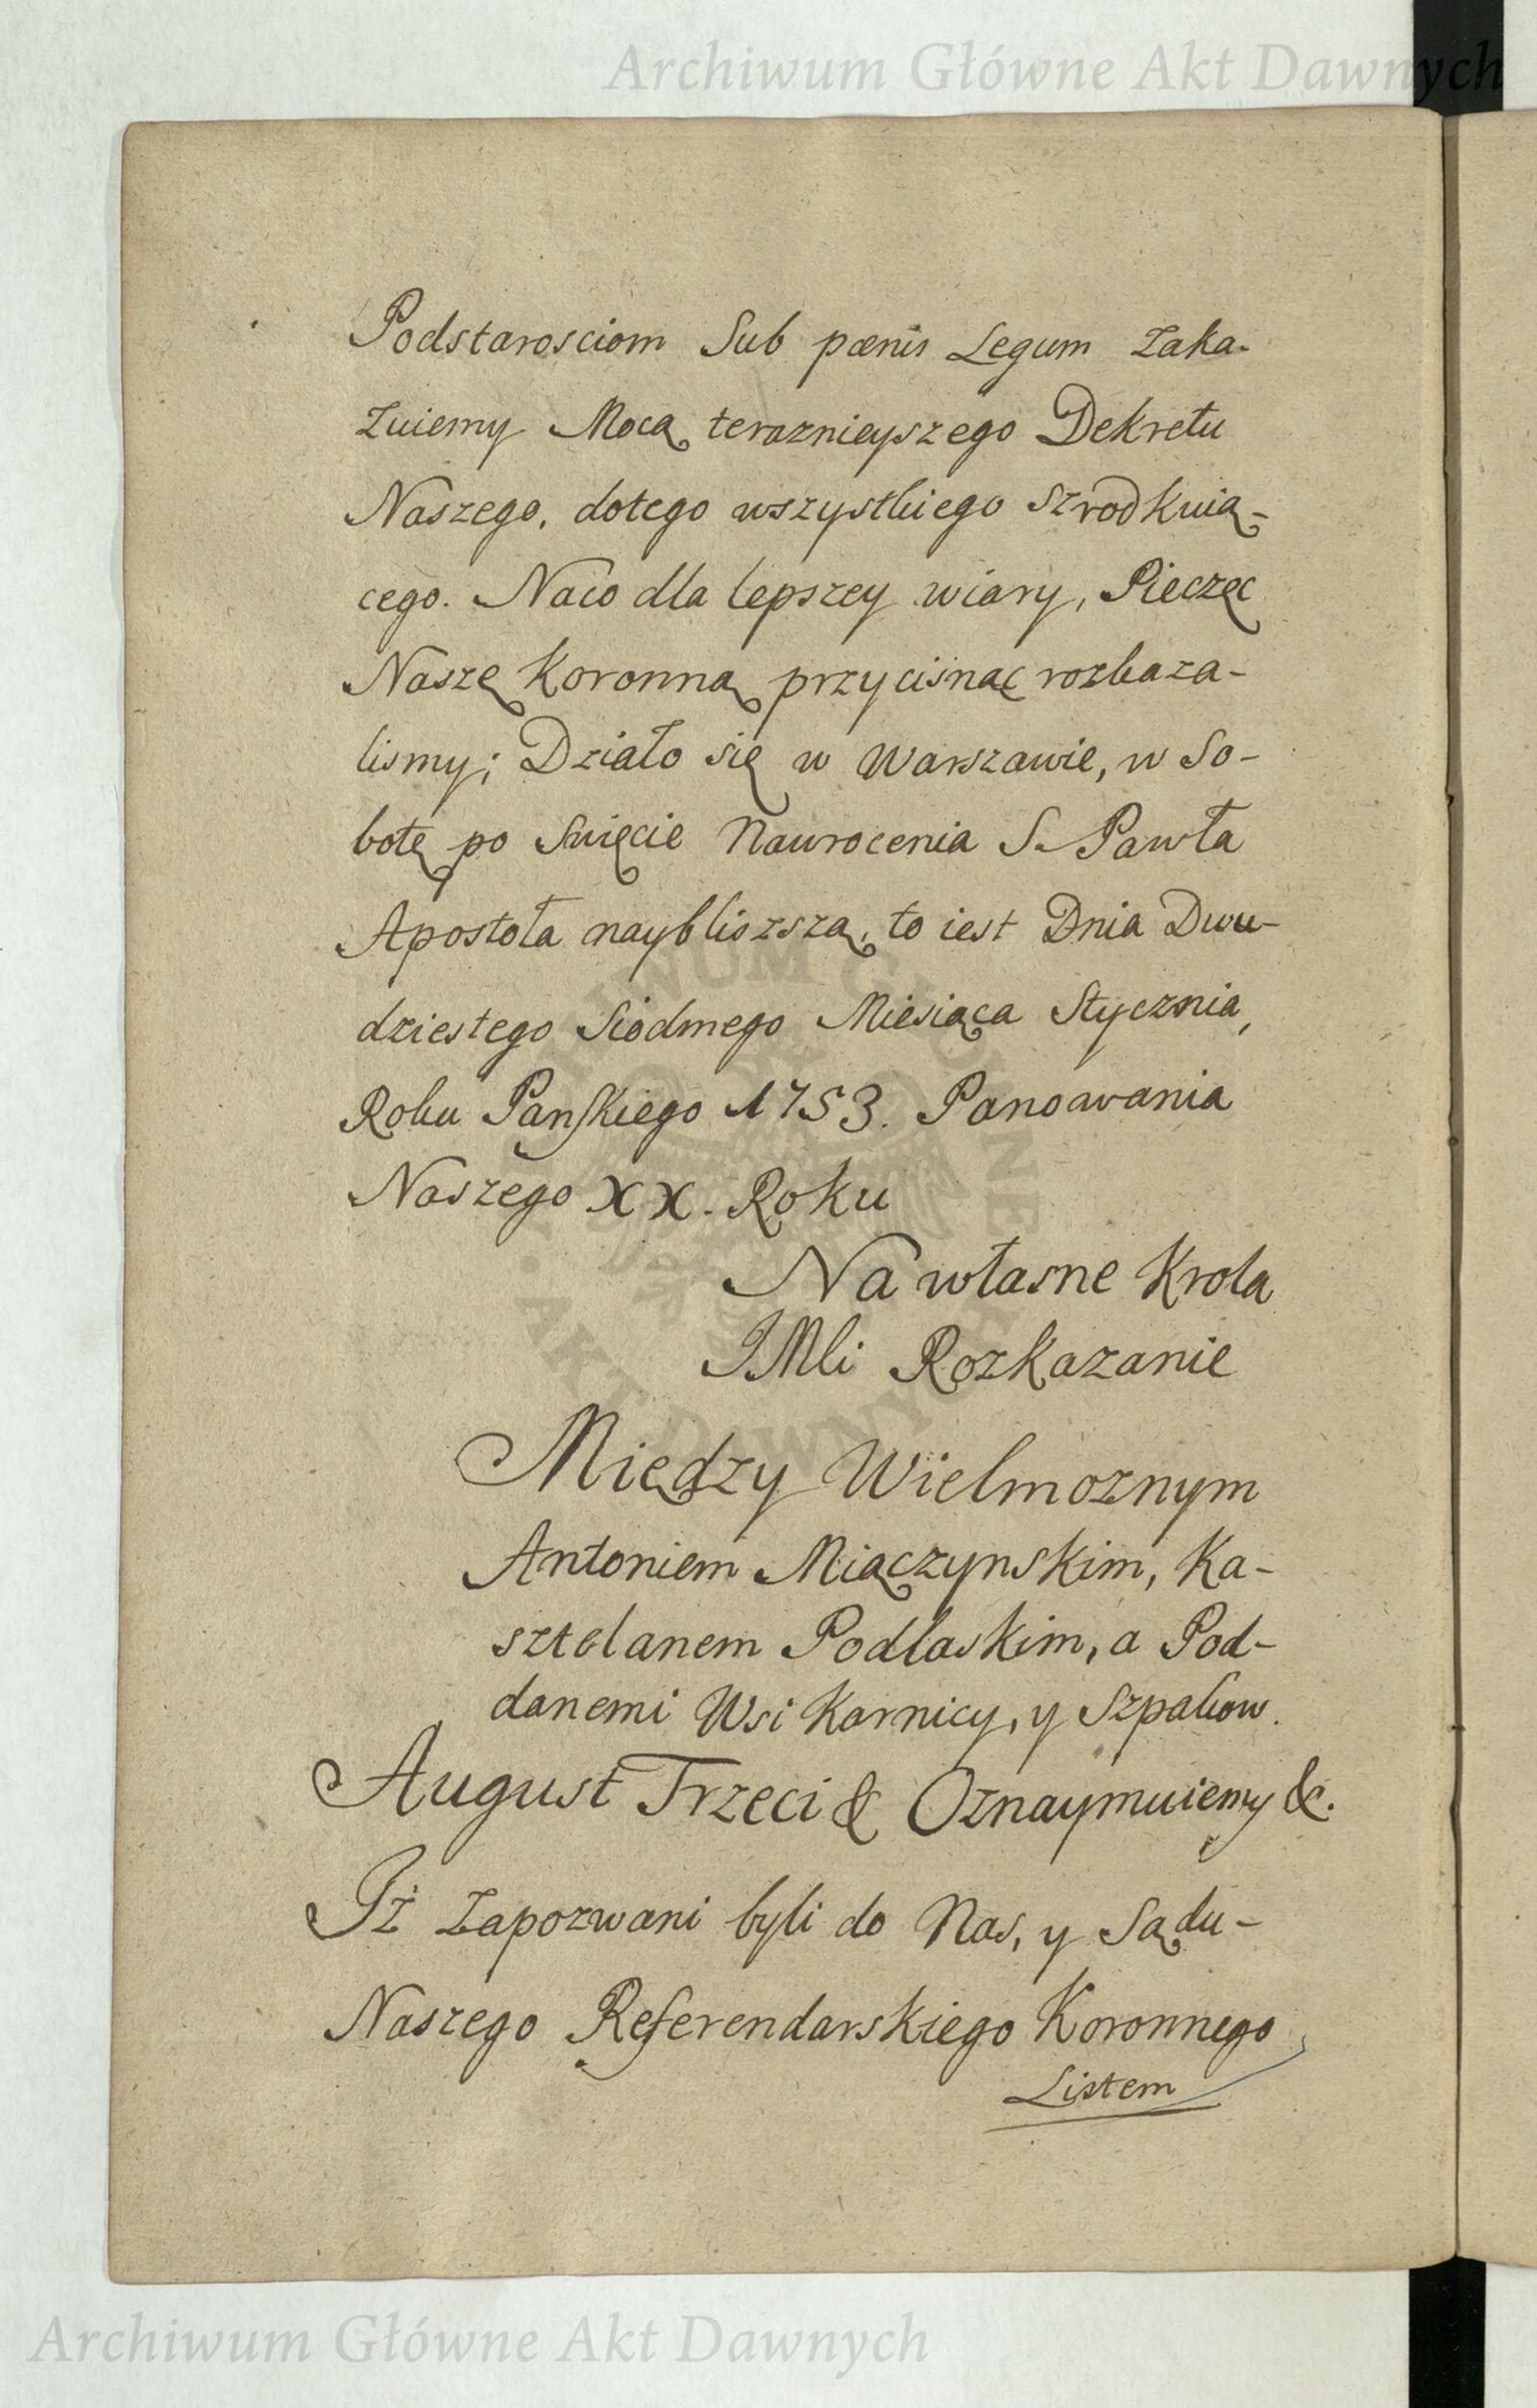 Archiwum Główne Akt Dawnych
Podstarosciom Sub pœnis Legum Zaka-
Zuiemy Mocą teraznieyszego Dekretu
Naszego, dotego wszystkiego szrodkuią-
cego. Naco dla lepszey wiary, Pieczęc
Naszę Koronną przycisnąc rozkaza-
lismy; Działo się w Warszawie, w So-
botę po Swięcie Nawrocenia S. Pawła
Apostoła naybliszszą, to iest Dnia Dwu-
dziestego Siodmego Miesiąca Stycznia,
Roku Pańskiego 1753. Panoawania
Naszego XX. Roku
Na własne Krola
JMci Rozkazanie
Między Wielmoznym
Antoniem Miączynskim, Ka-
sztelanem Podlaskim, a Pod-
danemi Wsi Karnicy, y Szpakow.
August Trzeci & Oznaymuiemy &c.
Iż Zapozwani byli do Nas, y Sądu-
Naszego Referendarskiego Koronnego
Listem
Archiwum Główne Akt Dawnych